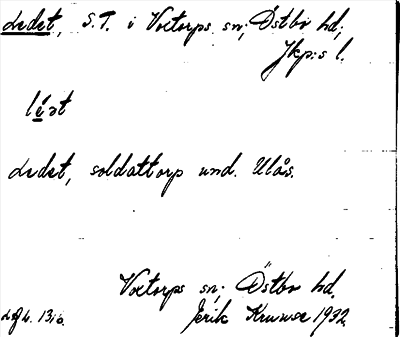 Ledet, S.T. i Voxtorps sn; Östbo hd;
Jkp:s l.
lé̱ət
Ledet, soldattorp und. Ulås.
Voxtorps sn; Östbo hd.
Jerik Krumse 1932.